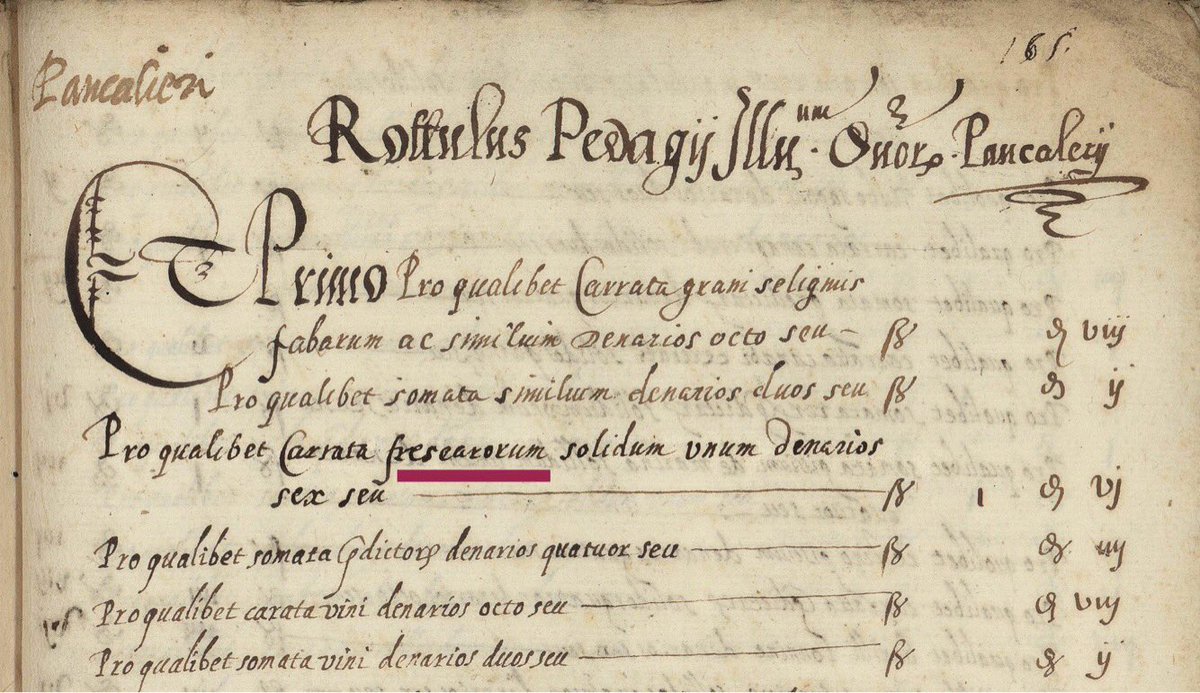 165.
Pancalieri
Rottulus Pedagij Illu.um Dnor. Pancalerij
Et Primo Pro qualibet Carrata grani seliginis
fabarum ac similium denarios octo seu — ß d viij
Pro qualibet somata similium denarios duos seu ß d ij
Pro qualibet Carrata fresearorum solidum unum denarios
sex seu — ß 1 d vj
Pro qualibet somata pdictor. denarios quatuor seu — ß d iiij
Pro qualibet carata vini denarios octo seu — ß d viij
Pro qualibet somata vini denarios duos seu — ß d ij